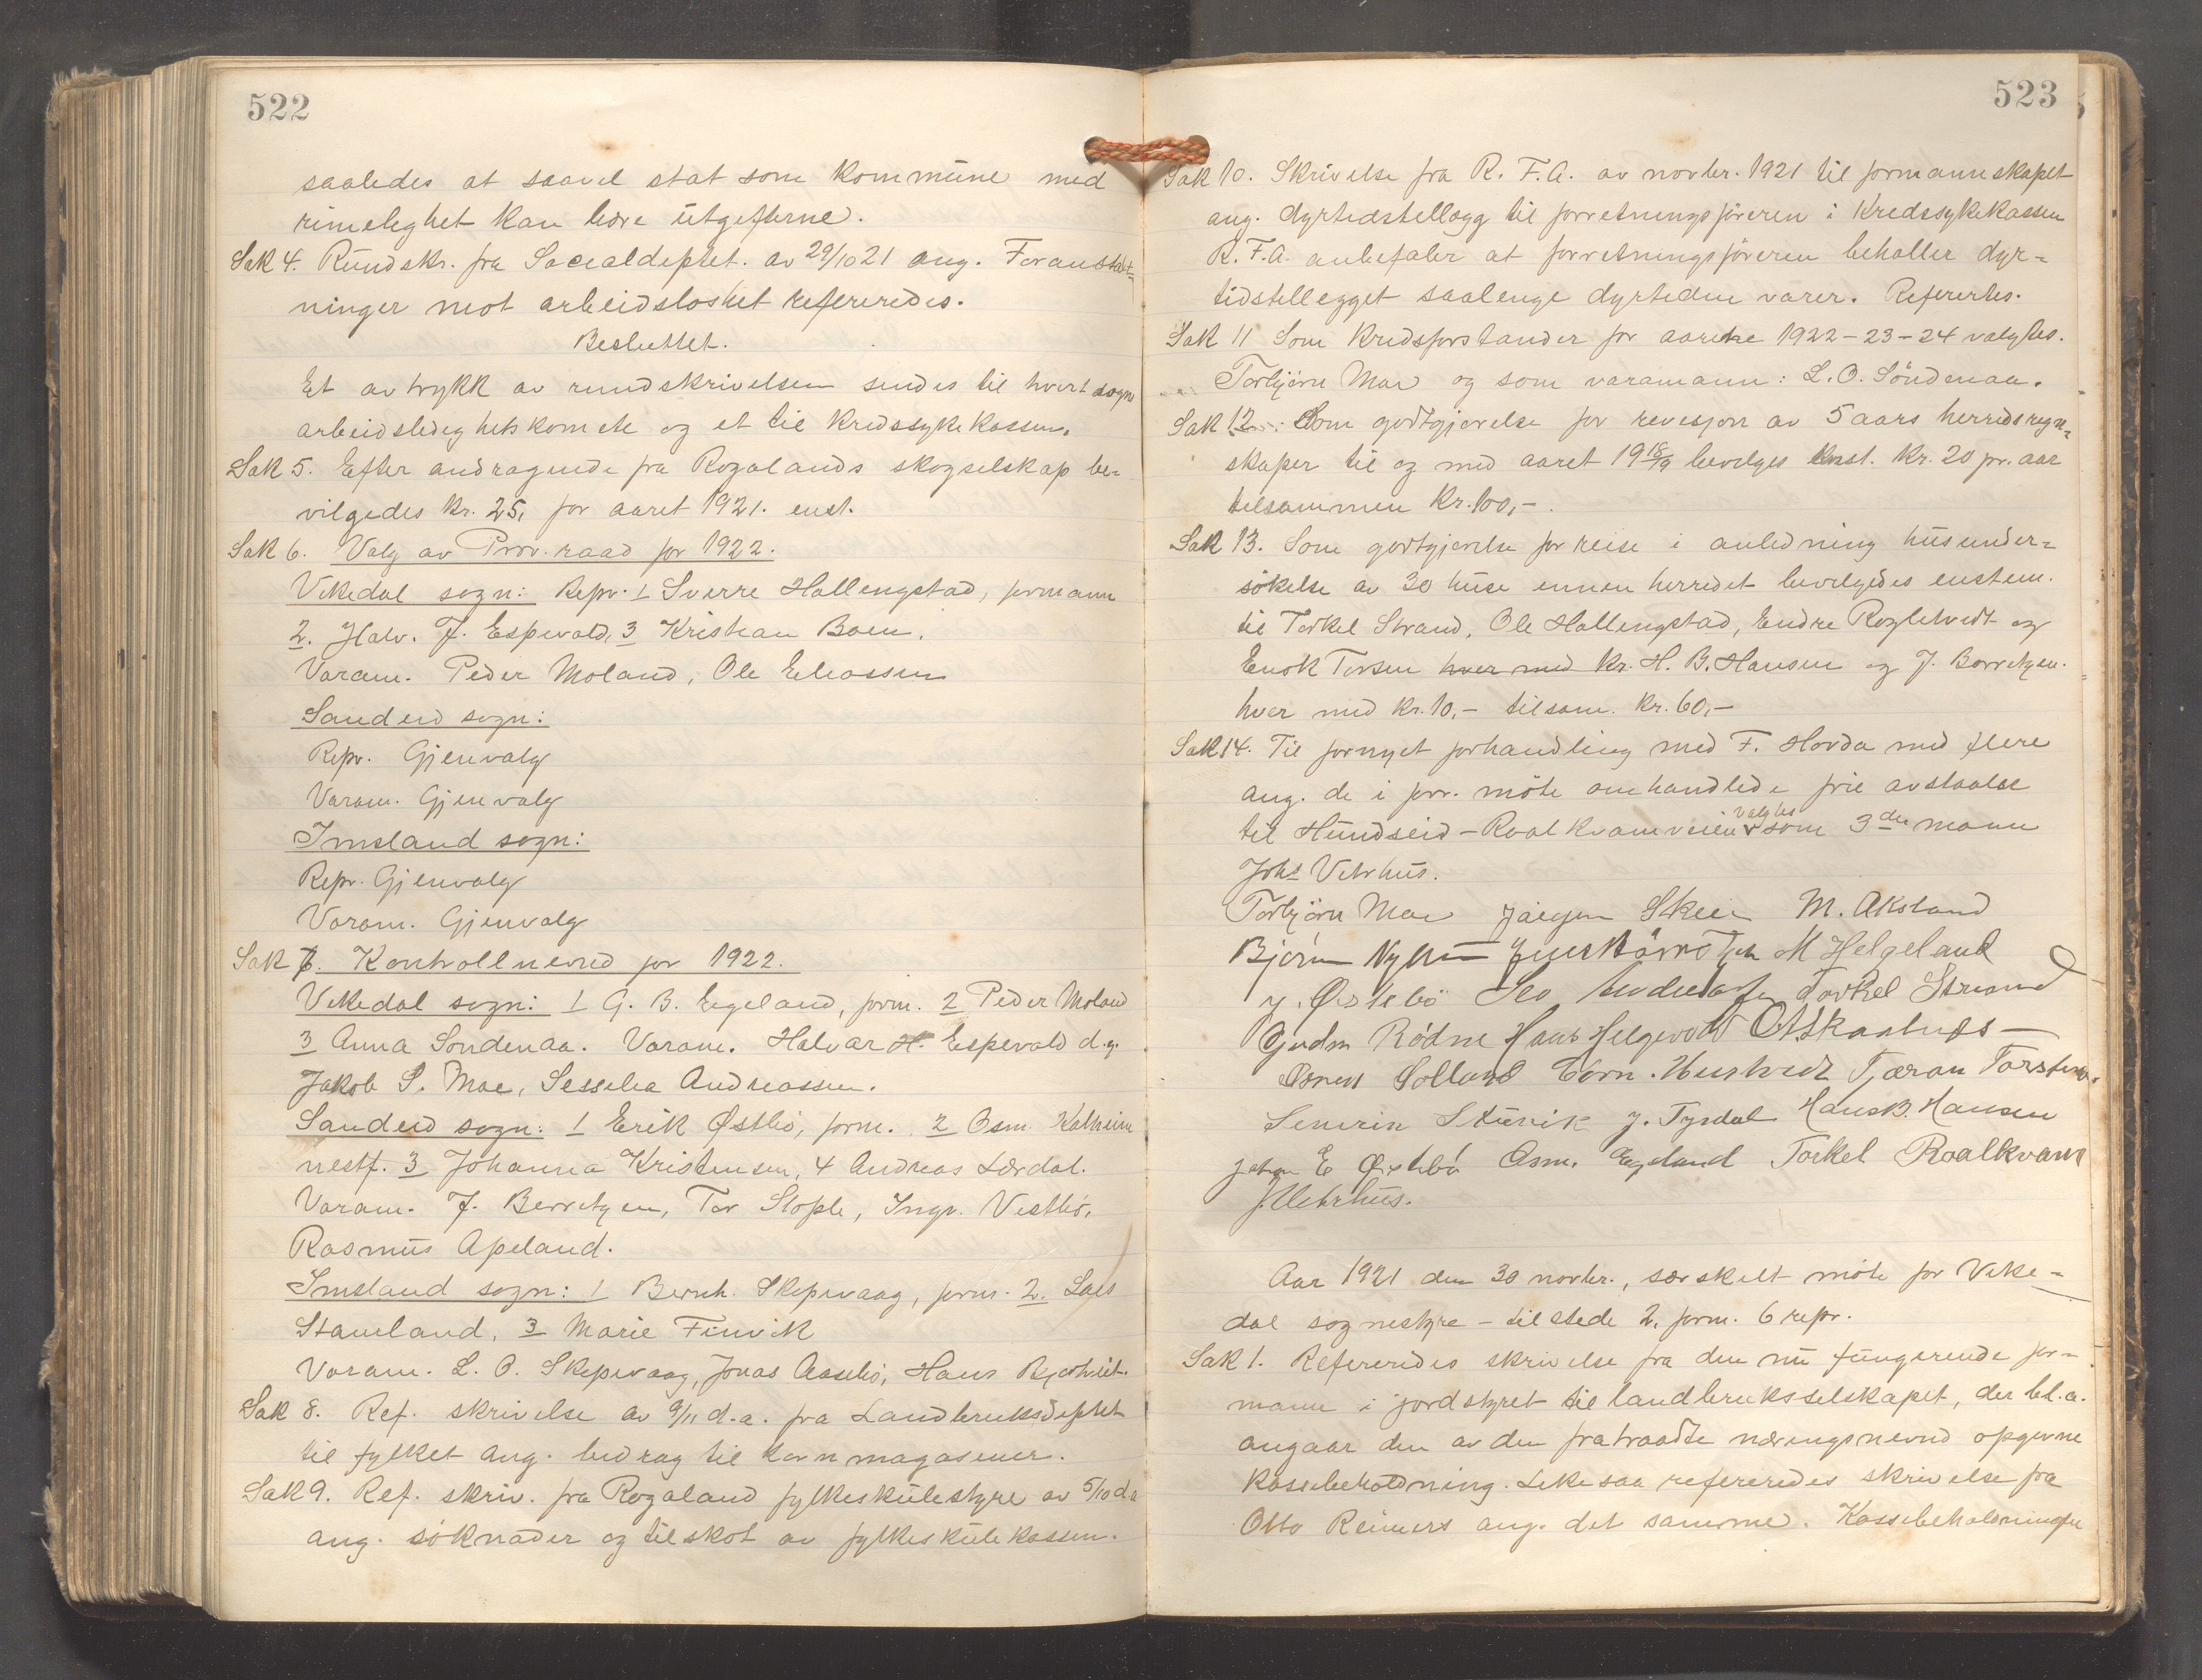 522
saaledes at saavel stat som kommune med
rimelighet kan bære utgifterne.
Sak 4. Rundskr. fra Socialdeptet. av 29/10 21 ang. Foranstalt-
ninger mot arbeidsloshet refereredes.
Besluttet.
Et avtrykk av rundskrivelsen sendes til hvert sogns
arbeidsledighetskomite og et til Kredssykekassen.
Sak 5. Efter andragende fra Rogalands skogselskap be-
vilgedes kr. 25, for aaret 1921. enst.
Sak 6. Valg av Prov. raad for 1922.
Vikedal sogn: Repr. 1 Sverre Hallengstad, formann
2. Halv. J. Espevold, 3 Kristian Boen.
Varam. Peder Moland, Ole Eliassen
Sandeid sogn:
Repr. Gjenvalg
Varam. Gjenvalg
Imsland sogn:
Repr. Gjenvalg
Varam. Gjenvalg
Sak 7. Kontrollnevnd for 1922.
Vikedal sogn: 1 G. B. Eegeland, form. 2 Peder Moland
3 Anna Sondenaa. Varam. Halvar H. Espevold d.y.
Jakob S. Mae, Sesselia Andreassen.
Sandeid sogn: 1 Erik Østbø, form. 2 Osm. Kalheim
nestf. 3 Johanna Kristensen, 4 Andreas Lærdal.
Varam. J. Berretzen, Tor Stople, Ingv. Vestbø,
Rasmus Apeland.
Imsland sogn: 1 Bernh. Skipevaag, form. 2. Lars
Stamland, 3 Marie Finvik
Varam. L. O. Skipevaag, Jonas Aasebø, Hans
Sak 8. Ref. skrivelse av 9/11 d.a. fra Landbruksdeptet
til fylket ang. bidrag til kornmagasiner.
Sak 9. Ref. skriv. fra Rogaland fylkesskulestyre av 5/10 d.a
ang. søknader og tilskot av fylkesskulekassen.
523
Sak 10. Skrivelse fra R. F. A. av novbr. 1921 til formannskapet
ang. dyrtidstillegg til forretningsføreren i Kredssykekassen
R. F. A. anbefaler at forretningsføreren beholler dyr-
tidstillegget saalenge dyrtiden varer. Referertes.
Sak 11 Som Kredsforstander for aarene 1922-23-24 valgtes.
Torbjörn Mæ og som varamann: L. O. Söndenaa.
Sak 12. Som godtgjørelse for revisjon av 5 aars herredsregn-
skaper til og med aaret 1918/19 bevilges enst. Kr. 20 pr. aar
tilsammen Kr. 100,-.
Sak 13. Som godtgjørelse for reise i anledning husunder-
søkelse av 30 huse innen herredet bevilgedes enstem.
til Torkel Strand, Ole Hallengstad, Endre Røgletvedt og
Enok Torsen hver med kr. H. B. Hansen og J. Berretzen.
hver med Kr. 10,- tilsam. Kr. 60,-
Sak 14. Til fornyet forhandling med F. Hovda med flere
ang. de i forr. möte omhandlede frie avstaalse
til Hundseid-Roalkvamveien valgtes som 3die mann
Johs Vetrhus.
Torbjörn Mæ Jørgen Skeie M. Aksland
Bjørn M Helgeland
J. Østebø Torkel Strand
Gudm Rødne Hans Helgevold
Solland Torn. Hustvedt Tjæran Torstens.
Severin Stuvik J. Tysdal Hans B. Hansen
Johan E Østebø Osm. Egeland Torkel Roalkvam
J. Vetrhus.
Aar 1921 den 30 novbr., særskilt möte for Vike-
dal sognestyre - tilstede 2. form. 6 repr.
Sak 1. Refereredes skrivelse fra den nu fungerende for-
mann i jordstyret til landbruksselskapet, der bl.a.
angaar den av den fratraadte næringsnevnd opgivne
kassebeholdning. Likesaa refereredes skrivelse fra
Otto Reimers ang. det samme. Kassebeholdningen